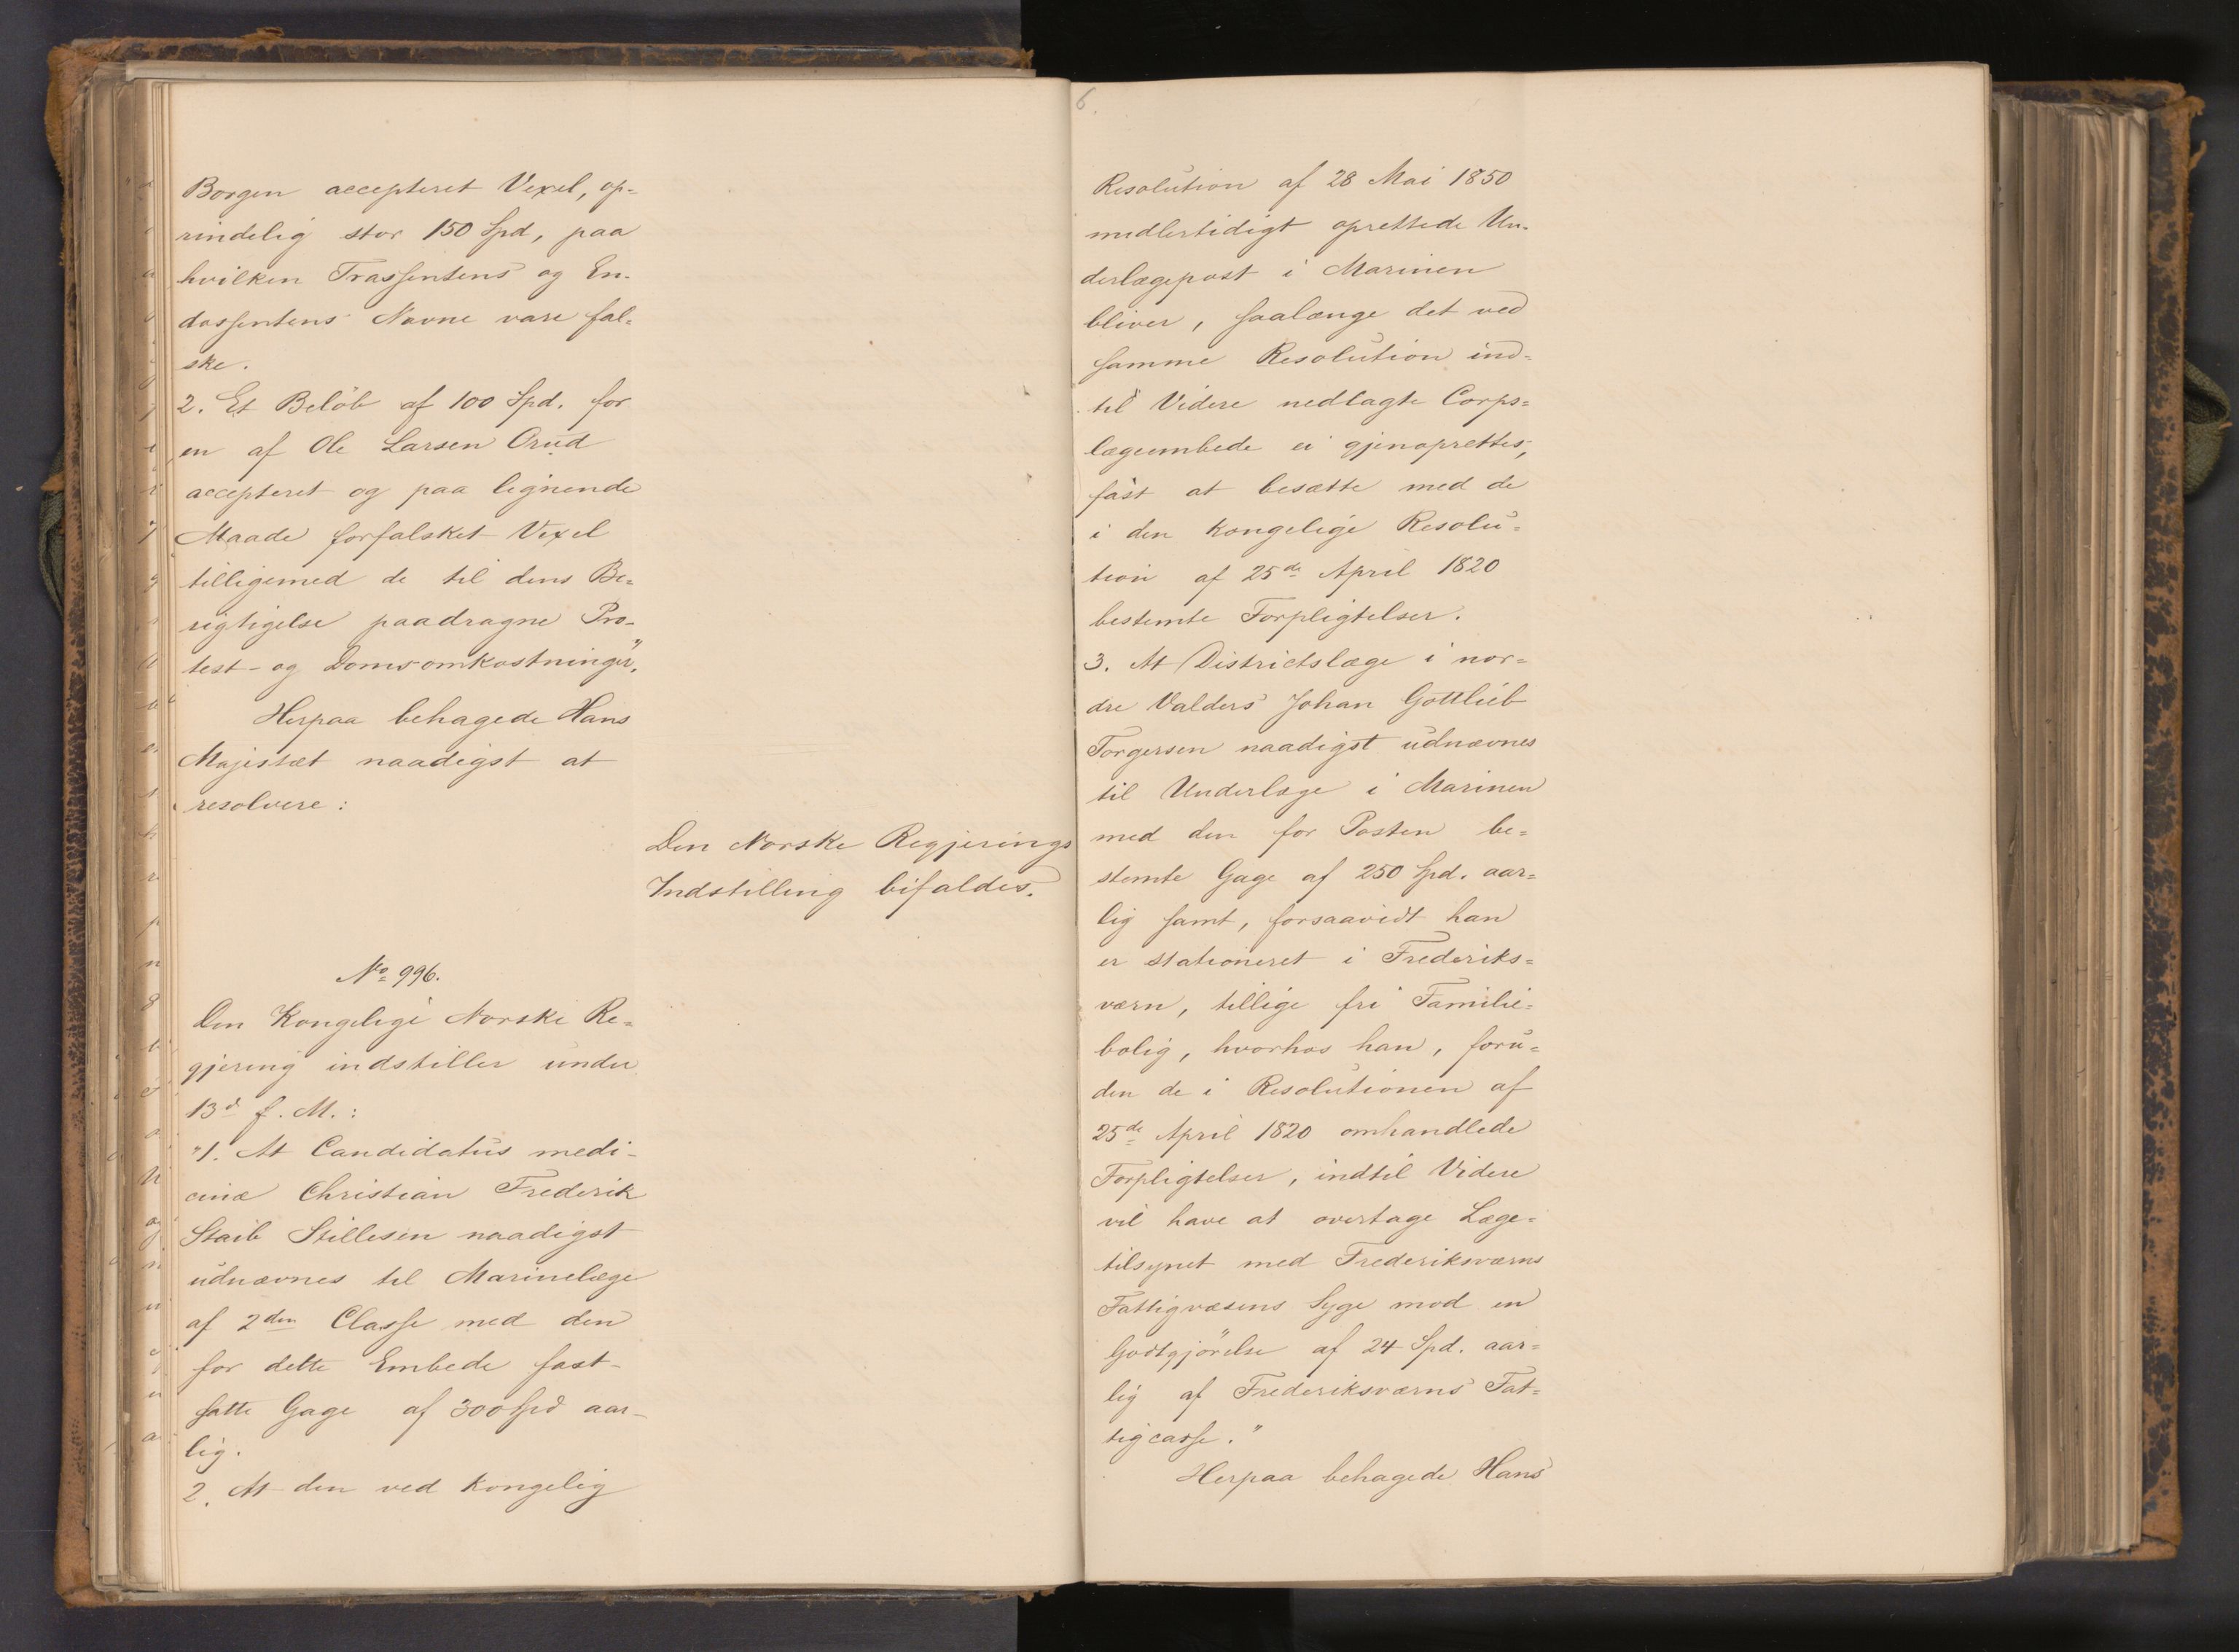 Borgen accepteret Vexel, op-
rindelig stor 150 Spd, paa
hvilken Trassentens og En-
dossentens Navne vare fal-
ske.
2. Et Beløb af 100 Spd. for
en af Ole Larsen Orud
accepteret og paa lignende
Maade forfalsket Vexel
tilligemed de til dens Be-
rigtigelse paadragne Pro-
test- og Domsomkostninger."
Herpaa behagede Hans
Majestæt naadigst at
resolvere:
Den Norske Regjerings
Indstilling bifaldes.
No 996.
Den Kongelige Norske Re-
gjering indstiller under
13d f. M.:
"1. At Candidatus medi-
cinæ Christian Frederik
Staib Stillesen naadigst
udnævnes til Marinelæge
af 2den Classe med den
for dette Embede fast-
satte Gage af 300 Spd aar-
lig.
2. At den ved kongelig
6.
Resolution af 28 Mai 1850
midlertidigt oprettede Un-
derlægepost i Marinen
bliver, saalænge det ved
samme Resolution ind-
til Videre nedlagte Corps-
lægeembede ei gjenoprettes,
fast at besætte med de
i den kongelige Resolu-
tion af 25de April 1820
bestemte Forpligtelser.
3. At Districtslæge i nor-
dre Valders Johan Gottlieb
Torgersen naadigst udnævnes
til Underlæge i Marinen
med den for Posten be-
stemte Gage af 250 Spd. aar-
lig samt, forsaavidt han
er stationeret i Frederiks-
værn, tillige fri Familie-
bolig, hvorhos han, foru-
den de i Resolutionen af
25de April 1820 omhandlede
Forpligtelser, indtil Videre
vil have at overtage Læge-
tilsynet med Frederiksværns
Fattigvæsens Syge mod en
Godtgjörelse af 24 Spd. aar-
lig af Frederiksværns Fat-
tigcasse."
Herpaa behagede Hans